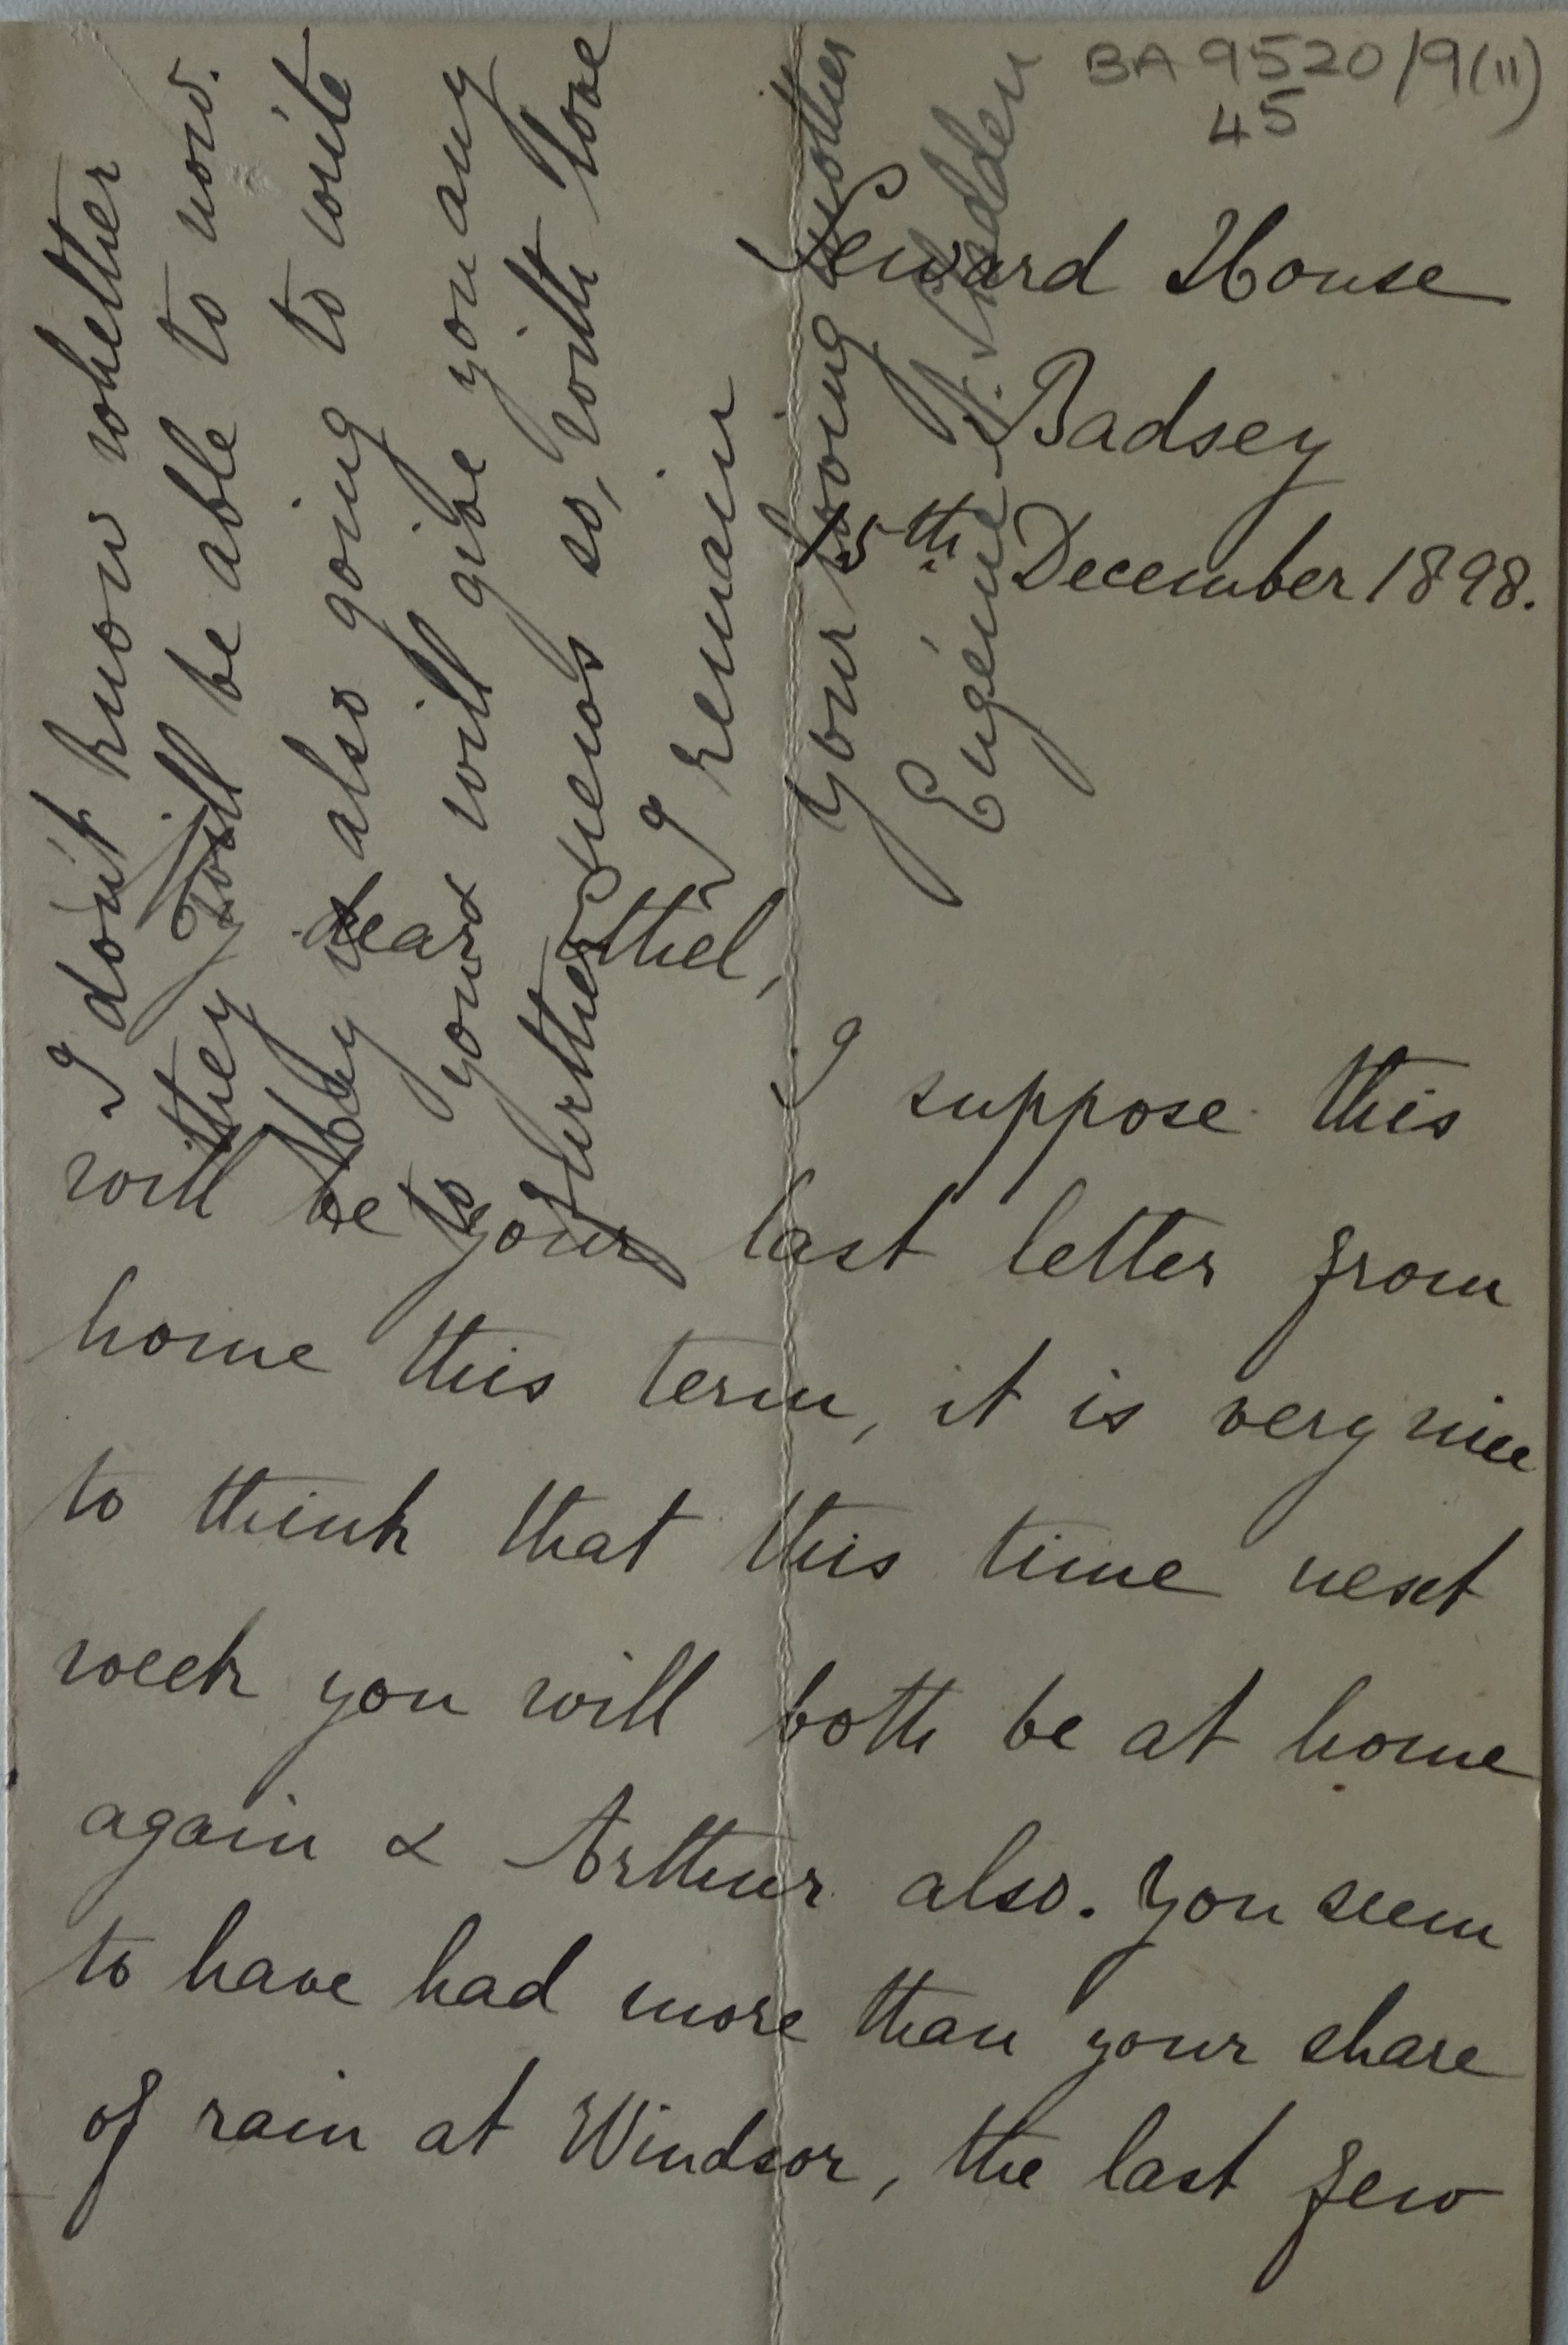 BA 9520/9(11)
45
Seward House
Badsey
15th December 1898.
My dear Ethel,
I suppose this
will be your last letter from
home this term, it is very nice
to think that this time next
week you will both be at home
again & Arthur also. You seem
to have had more than your share
of rain at Windsor, the last few
I don't know whether
they will be able to now.
May is also going to write
to you & will give you any
further news so, with love
I remain
Your loving mother
Eugénie A. Sladden